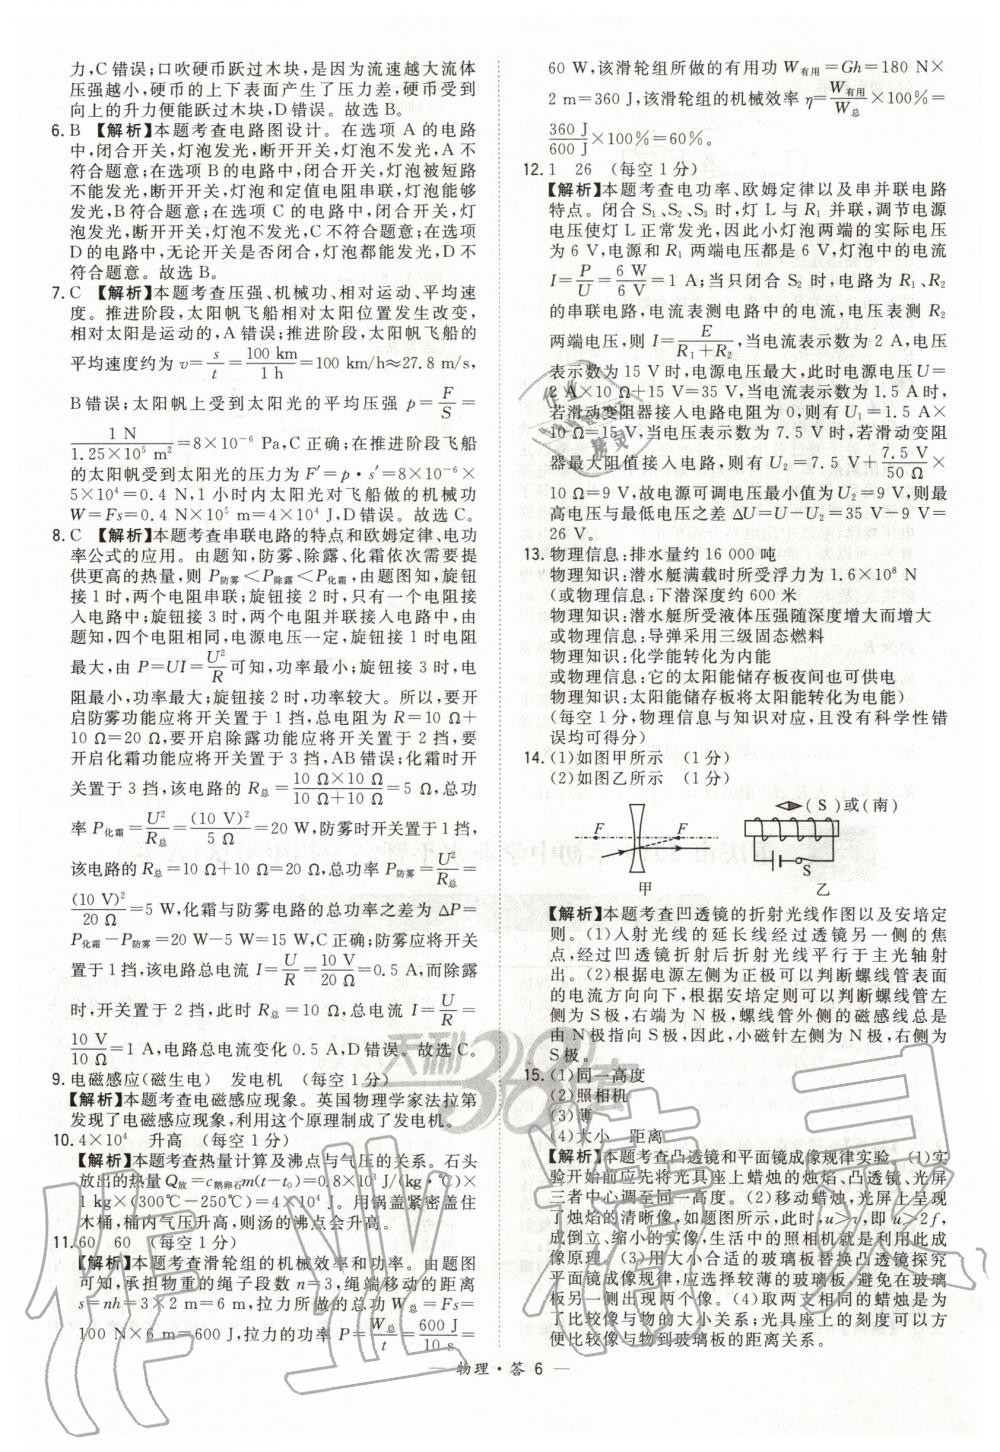 力,C错误;口吹硬币跃过木块,是因为流速越大流体
压强越小,硬币的上下表面产生了压力差,硬币受到
向上的升力便能跃过木块,D错误。故选B。
6. B 【解析】本题考查电路图设计。在选项A的电路
中,闭合开关,灯泡发光,断开开关,灯泡不发光,A不
符合题意;在选项B的电路中,闭合开关,灯泡被短路
不能发光,断开开关,灯泡和定值电阻串联,灯泡能够
发光,B符合题意;在选项C的电路中,闭合开关,灯
泡发光,断开开关,灯泡不发光,C不符合题意;在选项
D的电路中,无论开关是否闭合,灯泡都能发光,D不
符合题意。故选B。
7. C 【解析】本题考查压强、机械功、相对运动、平均速
度。推进阶段,太阳帆飞船相对太阳位置发生改变,
相对太阳是运动的,A错误;推进阶段,太阳帆飞船的
平均速度约为 v=s/t=100 km/1 h=100 km/h≈27.8 m/s,
B错误;太阳帆上受到太阳光的平均压强 p=F/S=
1 N/1.25×10⁵ m²=8×10⁻⁶ Pa,C正确;在推进阶段飞船
的太阳帆受到太阳光的压力为 F′=p·s′=8×10⁻⁶×
5×10⁴=0.4 N,1小时内太阳光对飞船做的机械功
W=Fs=0.4 N×10⁵ m=4×10⁴ J,D错误。故选C。
8. C 【解析】本题考查串联电路的特点和欧姆定律、电功
率公式的应用。由题知,防雾、除露、化霜依次需要提
供更高的热量,则 P防雾<P除露<P化霜,由题图知,旋钮
接1时,两个电阻串联;旋钮接2时,只有一个电阻接
入电路中;旋钮接3时,两个电阻并联接入电路中,由
题知,四个电阻相同,电源电压一定,旋钮接1时电阻
最大,由 P=UI=U²/R可知,功率最小;旋钮接3时,电
阻最小,功率最大;旋钮接2时,功率较大。所以,要开
启防雾功能应将开关置于1挡,总电阻为R=10 Ω+
10 Ω=20 Ω,要开启除露功能应将开关置于2挡,要
开启化霜功能应将开关置于3挡,AB错误;化霜时开
关置于3挡,该电路的R总=10 Ω×10 Ω/10 Ω+10 Ω=5 Ω,总功
率 P化霜=U²/R总=(10 V)²/5 Ω=20 W,防雾时开关置于1挡,
该电路的 R总=10 Ω+10 Ω=20 Ω,总功率 P防雾=U²/R总=
(10 V)²/20 Ω=5 W,化霜与防雾电路的总功率之差为 ΔP=
P化霜−P防雾=20 W−5 W=15 W,C正确;防雾应将开关
置于1挡,该电路总电流 I=U/R=10 V/20 Ω=0.5 A,而除露应
将开关置于2挡,此时 R总=10 Ω,总电流 I=U/R=
10 V/10 Ω=1 A,电路总电流变化0.5 A,D错误。故选C。
9. 电磁感应(磁生电) 发电机 (每空1分)
【解析】本题考查电磁感应现象。英国物理学家法拉第
发现了电磁感应现象,利用这个原理制成了发电机。
10. 4×10⁴ 升高 (每空1分)
【解析】本题考查热量计算及沸点与气压的关系。石头
放出的热量 Q放=c鹅卵石m(t−t₀)=0.8×10³ J/(kg·℃)×
1 kg×(300℃−250℃)=4×10⁴ J。用锅盖紧密盖住
木桶,桶内气压升高,则汤的沸点会升高。
11. 60 60 (每空1分)
【解析】本题考查滑轮组的机械效率和功率。由题图
可知,承担物重的绳子段数 n=3,绳端移动的距离
s=nh=3×2 m=6 m,拉力所做的总功 W总=Fs=
100 N×6 m=600 J,拉力的功率 P=W总/t=600 J/10 s=
60 W,该滑轮组所做的有用功 W有用=Gh=180 N×
2 m=360 J,该滑轮组的机械效率 η=W有用/W总×100%=
360 J/600 J×100%=60%。
12. 1 26 (每空1分)
【解析】本题考查电功率、欧姆定律以及串并联电路
特点。闭合S₁、S₂、S₃时,灯L与R₁并联,调节电源
电压使灯L正常发光,因此小灯泡两端的实际电压
为6 V,电源和R₁两端电压都是6 V,灯泡中的电流
I=P/U=6 W/6 V=1 A;当只闭合S₂时,电路为R₁、R₂
的串联电路,电流表测电路中的电流,电压表测R₂
两端电压,则 I=E/R₁+R₂,当电流表示数为2 A,电压
表示数为15 V时,电源电压最大,此时电源电压U=
2 A×10 Ω+15 V=35 V,当电流表示数为1.5 A时,
若滑动变阻器接入电路电阻为0,则有U₁=1.5 A
×10 Ω=15 V,当电压表示数为7.5 V时,若滑动变阻
器最大阻值接入电路,则有U₂=7.5 V+7.5 V/50 Ω
×10 Ω=9 V,故电源可调电压最小值为U₂=9 V,则最
高电压与最低电压之差ΔU=U−U₂=35 V−9 V=
26 V。
13. 物理信息:排水量约16 000吨
物理知识:潜水艇满载时所受浮力为1.6×10⁸ N
(或物理信息:下潜深度约600米
物理知识:潜水艇所受液体压强随深度增大而增大
或物理信息:导弹采用三级固态燃料
物理知识:化学能转化为内能
或物理信息:它的太阳能储存板夜间也可供电
物理知识:太阳能储存板将太阳能转化为电能)
(每空1分,物理信息与知识对应,且没有科学性错
误均可得分)
14. (1)如图甲所示 (1分)
(2)如图乙所示 (1分)
F F 甲
(S)或(南) S 乙
【解析】本题考查凹透镜的折射光线作图以及安培定
则。(1)入射光线的延长线经过透镜另一侧的焦
点,经过凹透镜折射后折射光线平行于主光轴射
出。(2)根据电源左侧为正极可以判断螺线管表面
的电流方向向下,根据安培定则可以判断螺线管左
侧为S极,右端为N极,螺线管外侧的磁感线总是
由N极指向S极,因此,小磁针左侧为N极,右侧为
S极。
15. (1)同一高度
(2)照相机
(3)薄
(4)大小 距离
【解析】本题考查凸透镜和平面镜成像规律实验。(1)实
验开始前应先将光具座上蜡烛的烛焰、凸透镜、光屏
三者中心调至同一高度。(2)移动蜡烛,光屏上呈现
了烛焰的清晰像,如题图所示,此时,u>v,即u>2f,
成倒立、缩小的实像,生活中的照相机应用了此成
像原理。(3)用大小合适的玻璃板替换凸透镜探究
平面镜成像规律,应选择较薄的玻璃板,避免在玻璃
板另一侧出现两个像。(4)取两支相同的蜡烛是为
了比较像与物的大小关系;光具座的刻度尺可以方
便比较像与物到玻璃板的距离关系。
物理·答 6